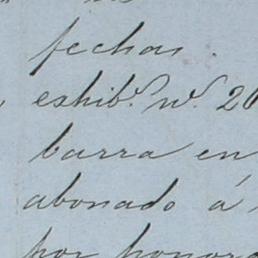 fechas.
exhib.ⁿ nº. 20
barra en
abonado á
por honora